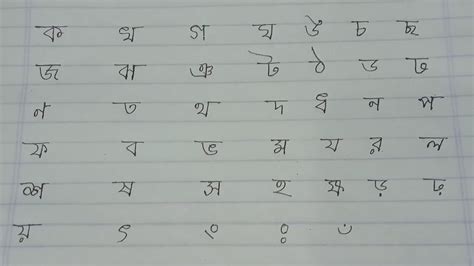 ক খ গ ঘ ঙ চ ছ
জ ঝ ঞ ট ঠ ড ঢ
ণ ত থ দ ধ ন প
ফ ব ভ ম য র ল
শ ষ স হ ক্ষ ড় ঢ়
য় ৎ ং ঃ ঁ